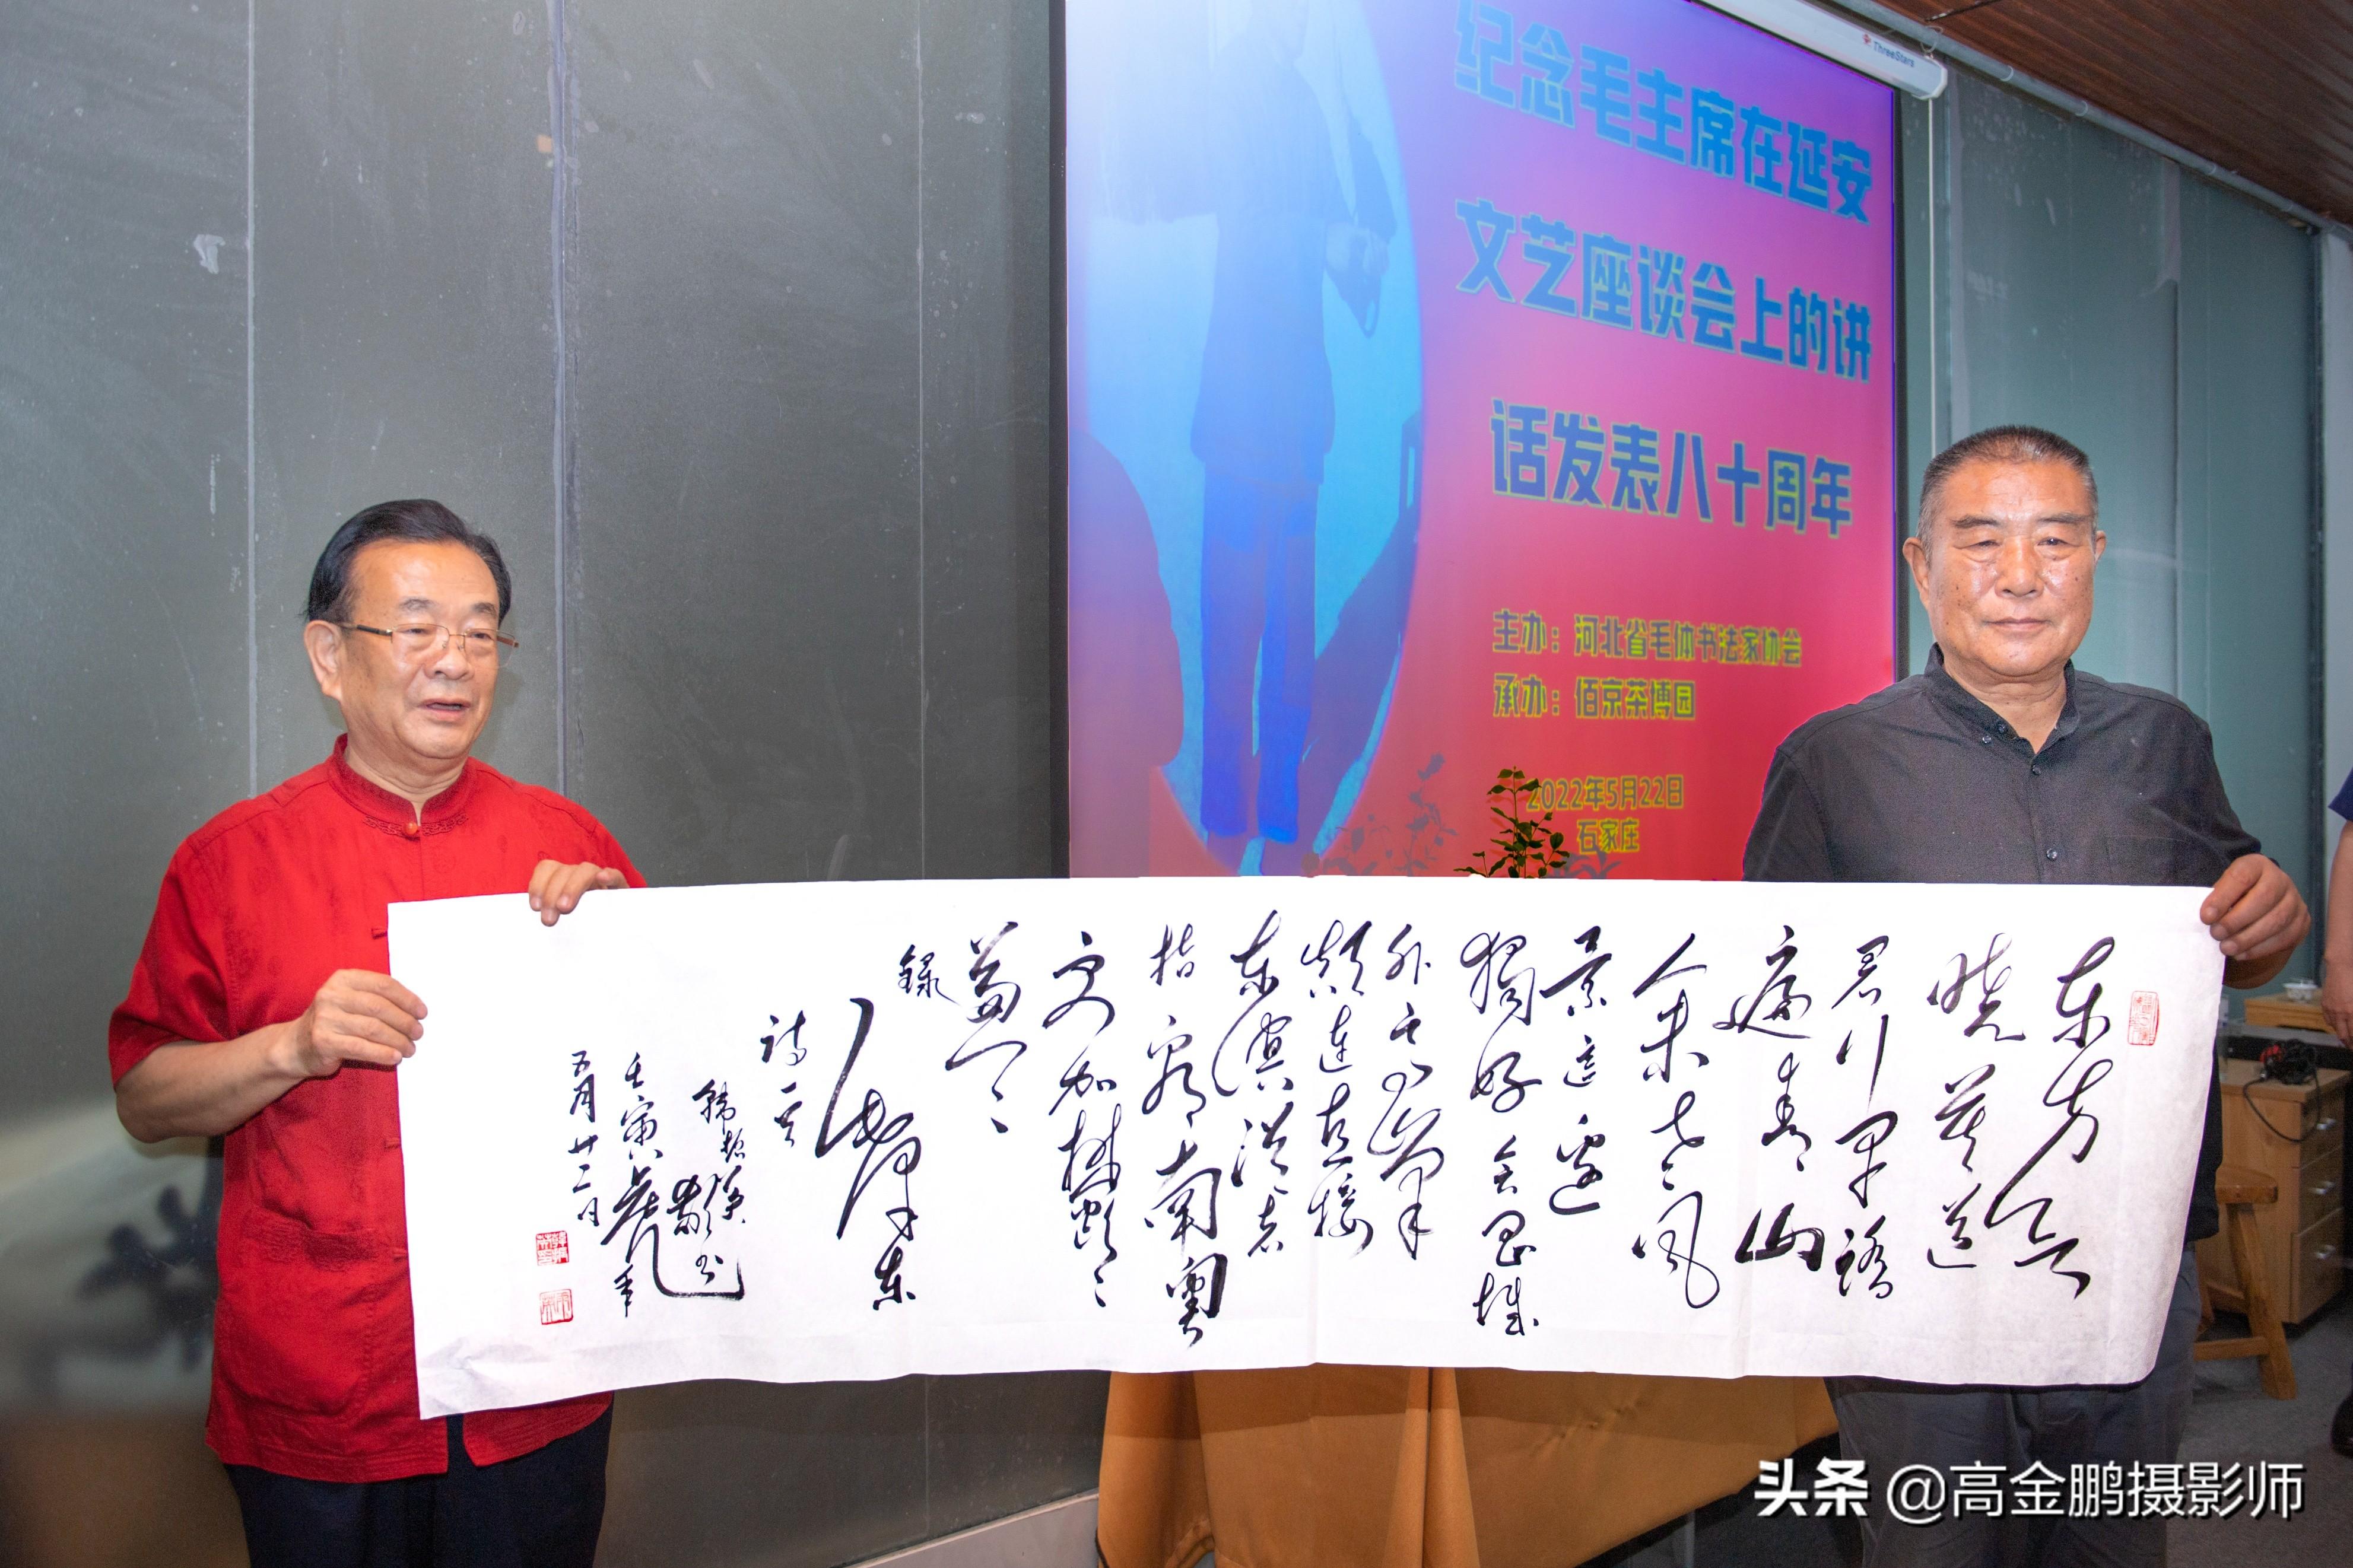 纪念毛主席在延安
文艺座谈会上的讲
话发表八十周年
主办：河北省毛体书法家协会
承办：佰京茶博园
2022年5月22日
石家庄
ThreeStars
东方欲
晓莫道
君行早踏
遍青山
人未老风
景這邊
獨好会昌城
外高峰
颠连直接
东溟战士
指看南粤
更加鬱
葱
録毛泽东
诗一首
敬书
壬寅虎年
五月廿二日
头条 @高金鹏摄影师